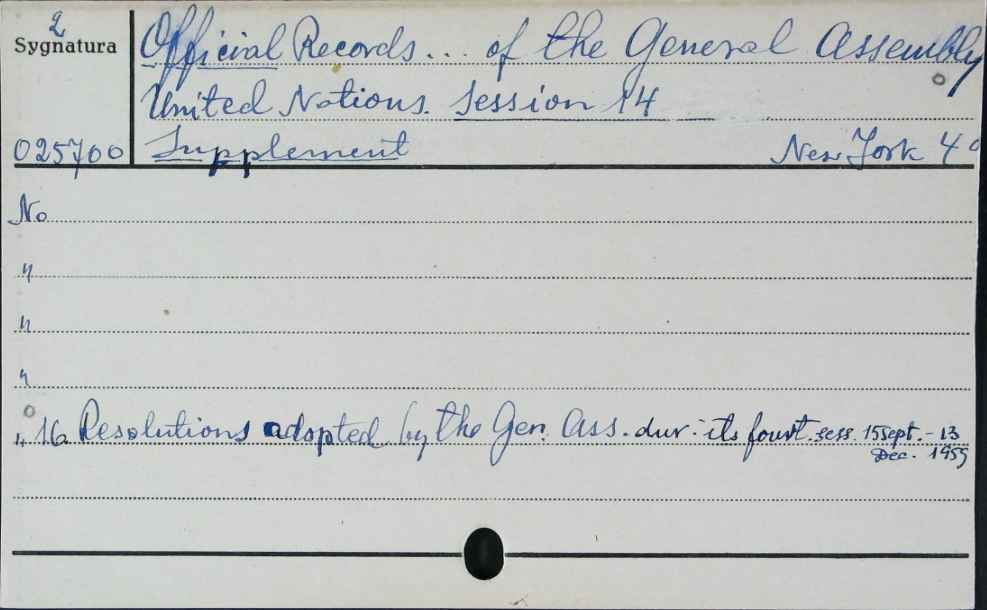 2
Sygnatura
Official Records... of the General Assembly
United Nations. Session 14
025700 Supplement New York 4°
No
"
"
"
" 16 Resolutions adopted by the Gen. Ass. dur. its fourt. sess. 15 sept. - 13
Dec. 1959